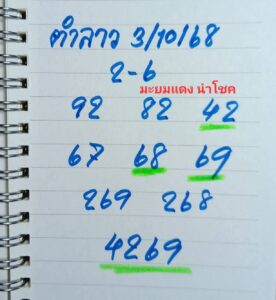 ตำลาว 3/10/68
2-6
มะยมแดง นำโชค
92 82 42
67 68 69
269 268
4269